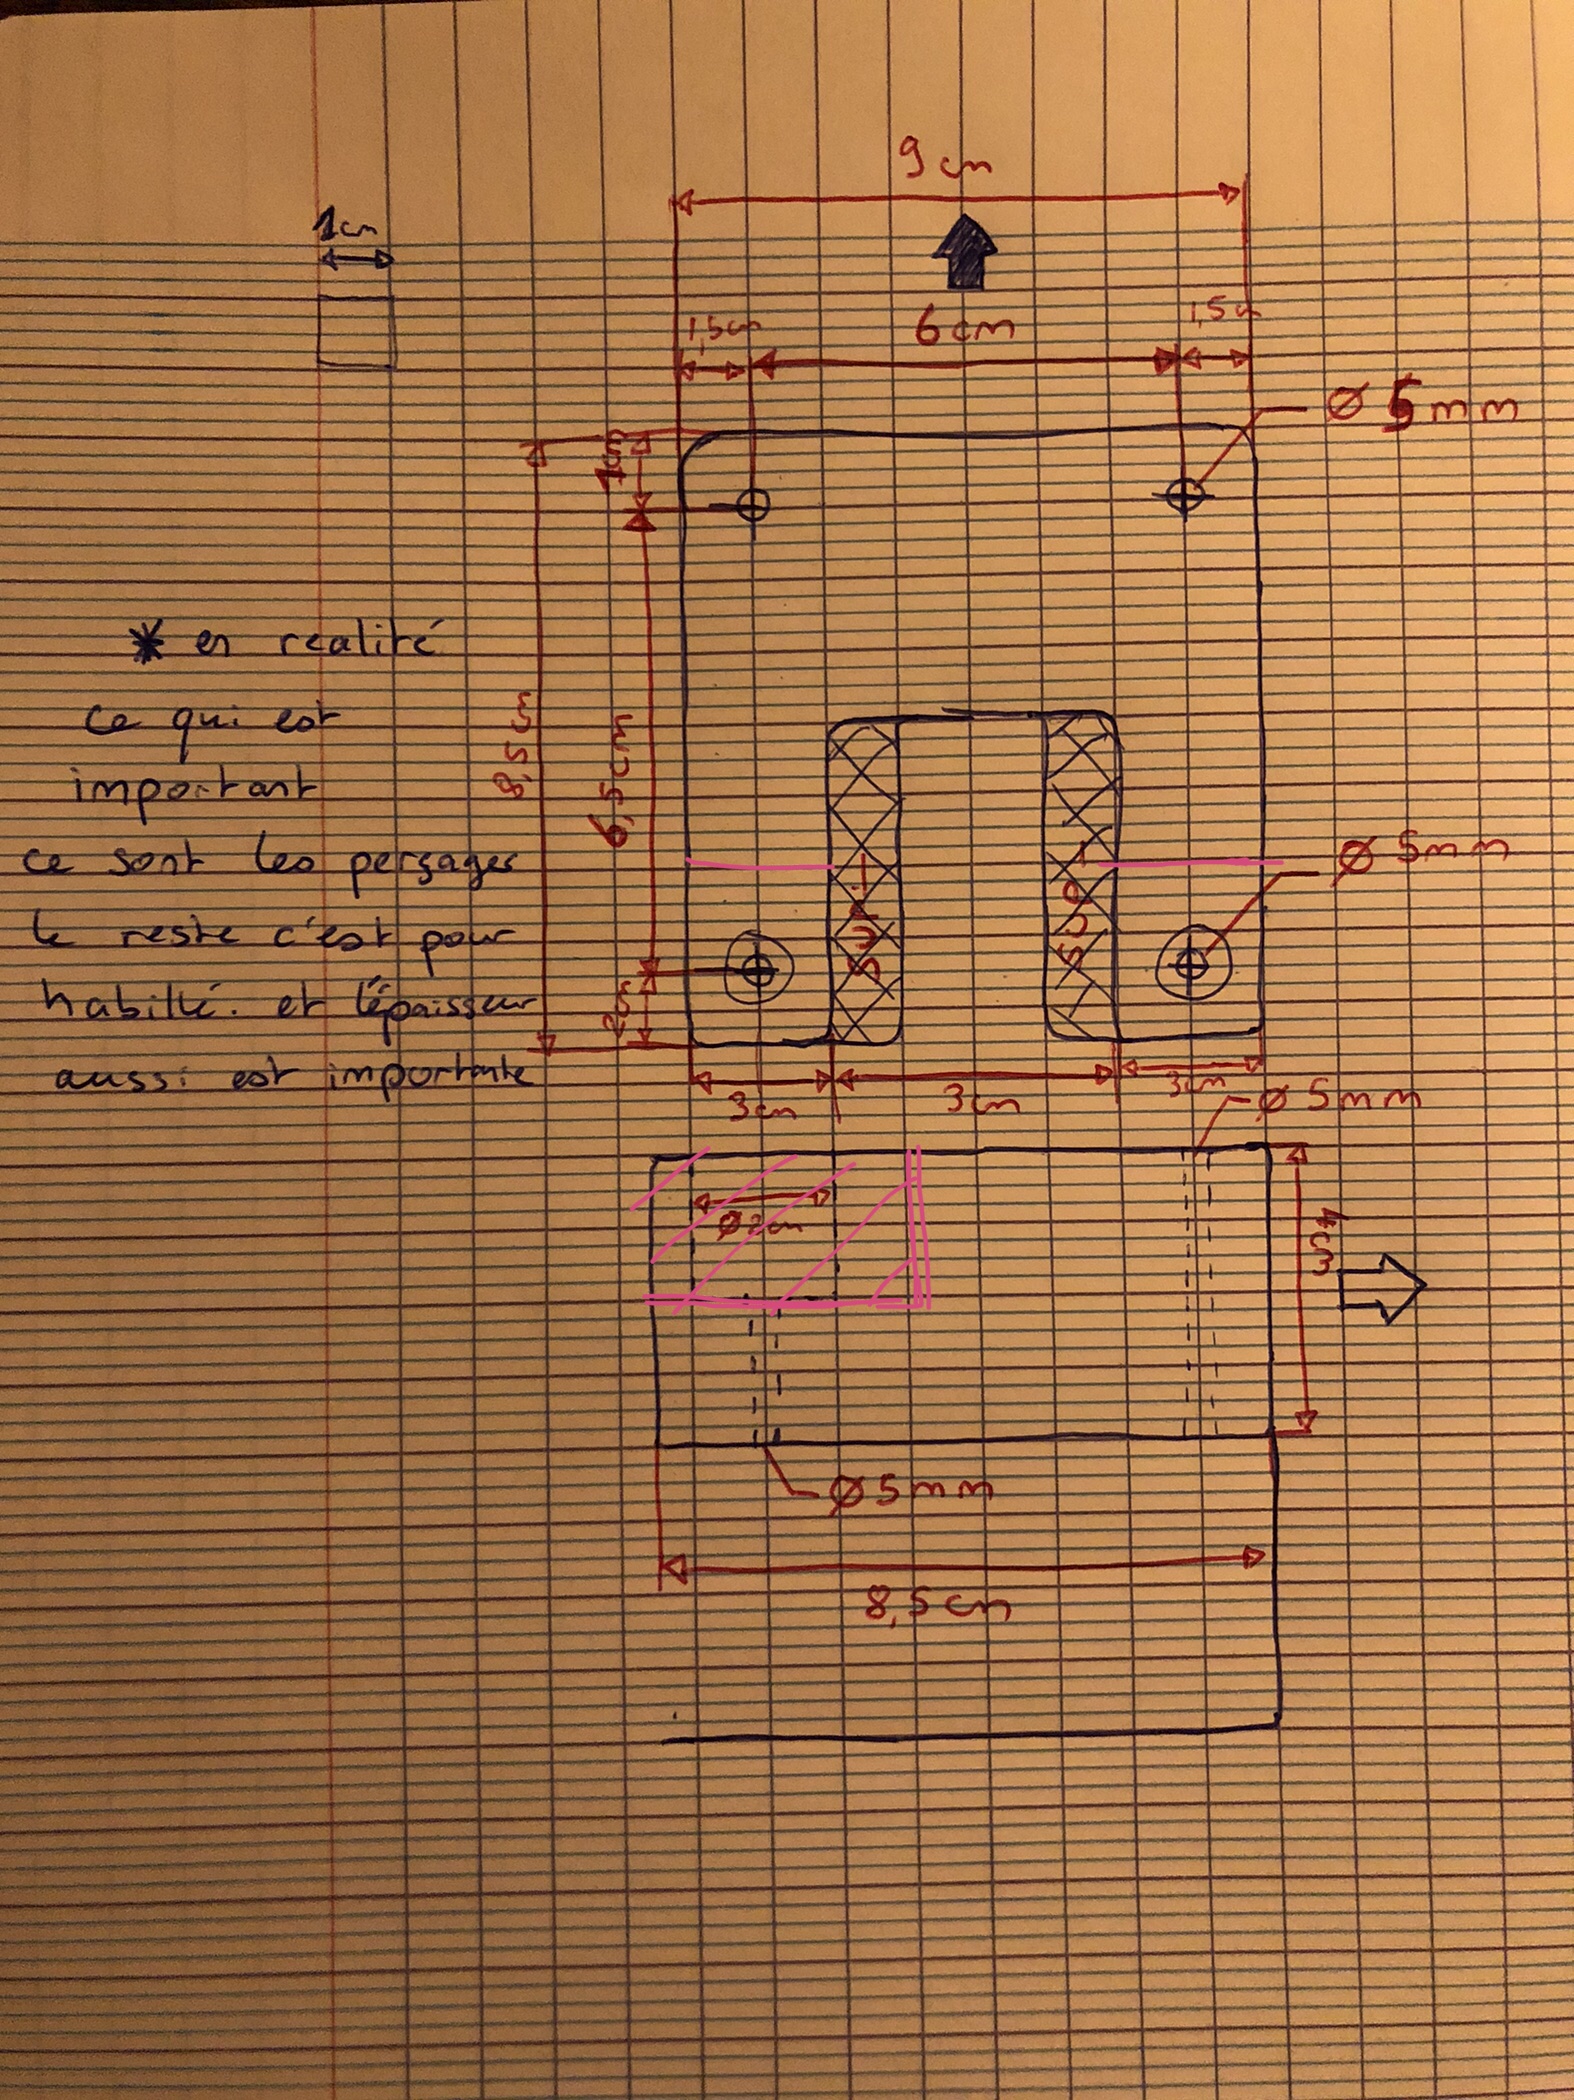 9 cm
1cm
1,5cm
6 cm
1,5c
Ø 5 mm
1cm
* en realité
ce qui est
important
ce sont les perçages
le reste c'est pour
habillé. et l'épaisseur
aussi est importante
8,5
6,5cm
Ø 5mm
3cm
3cm
3cm
Ø 5mm
4cm
Ø5mm
8,5cm